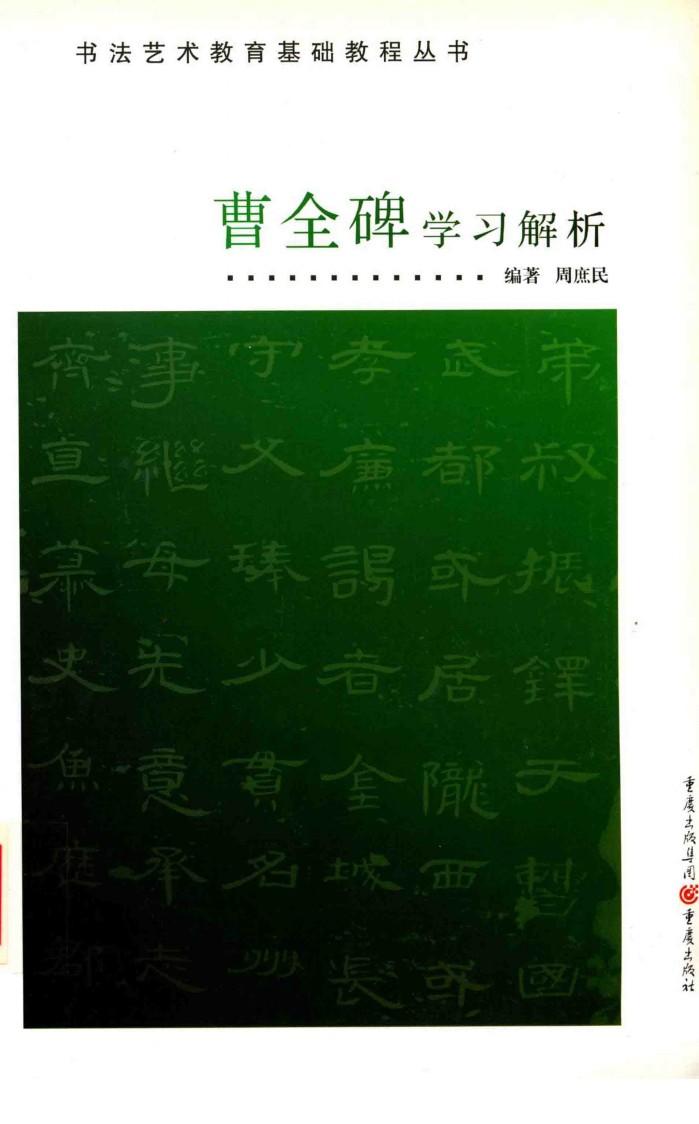 书法艺术教育基础教程丛书
曹全碑学习解析
编著 周庶民
弟叔振鐸于曹國
武都或居隴西或
孝廉謁者金城長
守父琫少貫名州
事繼母先意承志
齊直慕史魚歷郡
重庆出版集团 重庆出版社